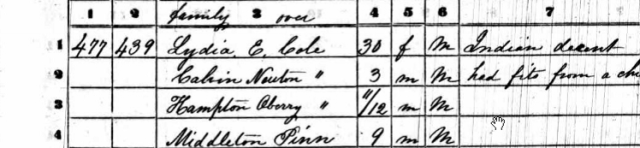 1 2 family 3 over 4 5 6 7
1 477 439 Lydia E. Cole 30 f M Indian decent
2 Calvin Newton " 3 m M had fits from a chi
3 Hampton Oberry " 11/12 m M
4 Middleton Pinn 9 m M